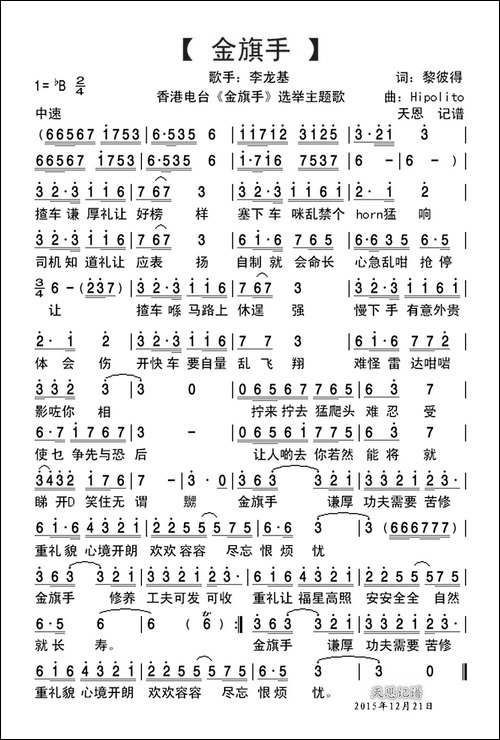 【 金旗手 】
1=♭B 2/4
歌手：李龙基
词：黎彼得
香港电台《金旗手》选举主题歌
曲：Hipolito
中速
天恩 记谱
(66567 1753 | 6·535 6 | 111712 3125 | 3·21 3 |
66567 1753 | 6·535 6 | 1·716 7537 | 6 - | 6 -) |
3 2·3 1 1 6 | 7 67 3 | 3 2·3 1 1 6 | 2·1 2 |
揸车谦厚礼让 好榜 样 塞下车 咪乱禁个 horn猛 响
3 2·3 1 1 6 | 7 67 3 | 6 1· 6 765 | 3 2·3 5 6 |
司机知道礼让 应表 扬 自制就会命长 心急乱咁 抢停
3/4 6 - (237) | 3 2·3 1 1 6 | 7 67 3 | 3 2·3 1 1 6 |
让 揸车喺马路上 休逞 强 慢下手有意外贵
2· 1 | 3 2·3 1 1 6 | 7 67 3 | 6 1· 6 765 |
体会伤 开快车要自量 乱飞翔 难怪雷达咁啱
3 2 3 2 | 3 - | 3 0 | 0 6 5 6 7 6 7 5 | 6 3 7 |
影咗你 相 拧来拧去 猛爬头 难忍 受
6·7 1 7 6 7 | 3 - | 0 6 5 6 7 6 7 5 | 6 3 7 |
使乜 争先与恐 后 让人啲去 你若然 能将 就
3 4 4 3 2 1 7 1 | 7 - | 3·0 | 3 6 3 | 3 3 2 1 | 3 3 2 1 2 3 |
睇 开D 笑住无 谓 嬲 金旗手 谦厚 功夫需要 苦修
6 1 6 4 3 2 1 | 2 2 5 5 | 5 7 5 6 | 3 - | 3 (666777) |
重礼貌 心境开朗 欢欢容容 尽忘 恨烦 忧
3 6 3 | 3 3 2 1 | 3 3 2 1 2 3 | 6 1 6 4 3 2 1 | 2 2 5 5 5 7 5 |
金旗手 修养 工夫可发 可收 重礼让 福星高照 安安全全 自然
6· 3 5 | 6 - | 6 (6) :‖ 3 6 3 | 3 3 2 1 | 3 3 2 1 2 3 |
就长 寿。 金旗手 谦厚 功夫需要 苦修
6 1 6 4 3 2 1 | 2 2 5 5 | 5 7 5 6 | 3 - | 3 - ‖
重礼貌 心境开朗 欢欢容容 尽忘 恨烦 忧。
天恩记谱
2015年12月21日